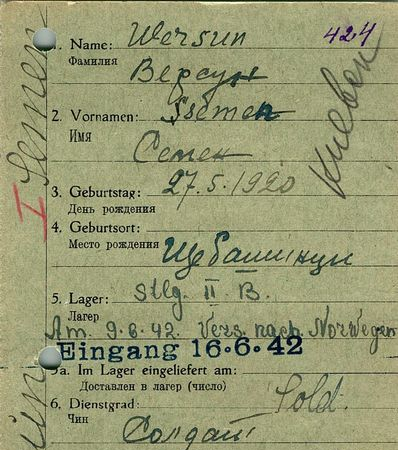 424
1. Name: Wersun
Фамилия
Версун
2. Vornamen: Ssemen
Имя
Семен
3. Geburtstag: 27.5.1920
День рождения
4. Geburtsort:
Место рождения
5. Lager: Stlg. II B.
Лагер
Am. 9.6.42. Vers. nach Norwegen
Eingang 16.6.42
5a. Im Lager eingeliefert am:
Доставлен в лагер (число)
6. Dienstgrad: Sold.
Чин
Солдат
I Semen